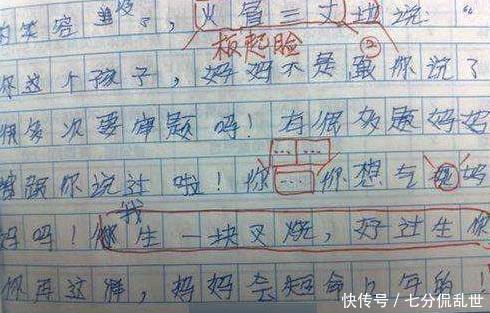 的笑容 火冒三丈地说："
板起脸 ②
你这个孩子，妈妈不是跟你说了
很多次要审题吗！有很多题妈妈
都跟你说过啦！你……你想气死妈
妈吗！我生一块叉烧，好过生你
你再这样，妈妈会短命几年的！
快传号 / 七分侃乱世